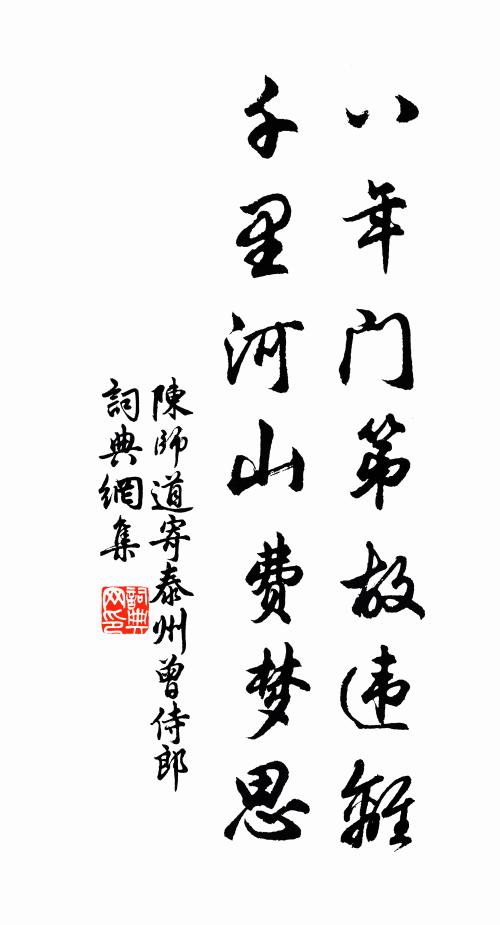 八年门第故违離
千里河山费梦思
陳師道寄泰州曾侍郎
詞典網集
詞典
网印